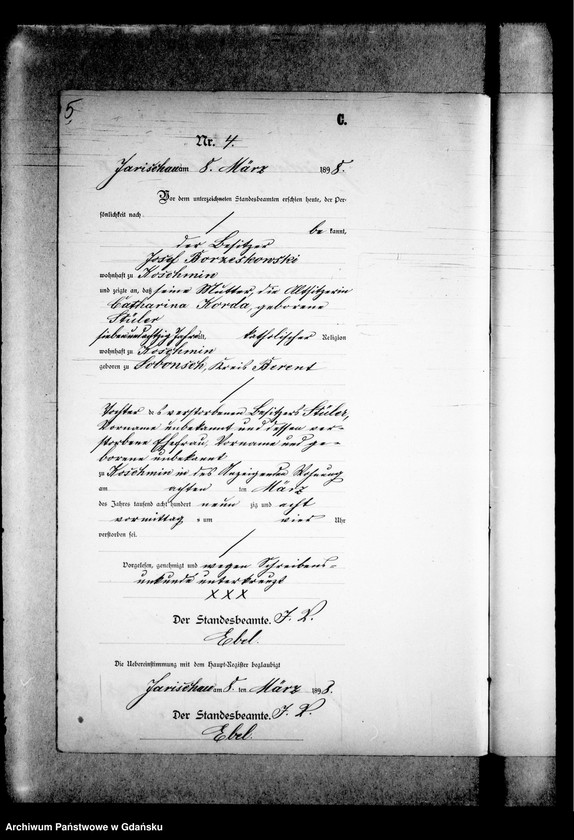 5.
C.
Nr. 4.
Jarischau am 8. März 1898.
Vor dem unterzeichneten Standesbeamten erschien heute, der Per-
sönlichkeit nach
be kannt,
der Besitzer
Josef Borzeskowski
wohnhaft zu Koschmin
und zeigte an, daß seine Mutter, die Altsitzerin
Catharina Korda, geborene
Stüler
siebenundachtzig Jahre alt, katholischer Religion
wohnhaft zu Koschmin
geboren zu Sobonsch, Kreis Berent
Tochter des verstorbenen Besitzers Stüler,
Vorname unbekannt und dessen ver-
storbene Ehefrau, Vorname und ge-
borene unbekannt
zu Koschmin in des Anzeigenden Wohnung
am achten ten März
des Jahres tausend acht hundert neun zig und acht
vormittag s um vier Uhr
verstorben sei.
Vorgelesen, genehmigt und wegen Schreibens-
unkunde unterkreuzt
XXX
Der Standesbeamte. I. V.
Ebel.
Die Uebereinstimmung mit dem Haupt-Register beglaubigt
Jarischau am 8. ten März 1898.
Der Standesbeamte. I. V.
Ebel.
Archiwum Państwowe w Gdańsku